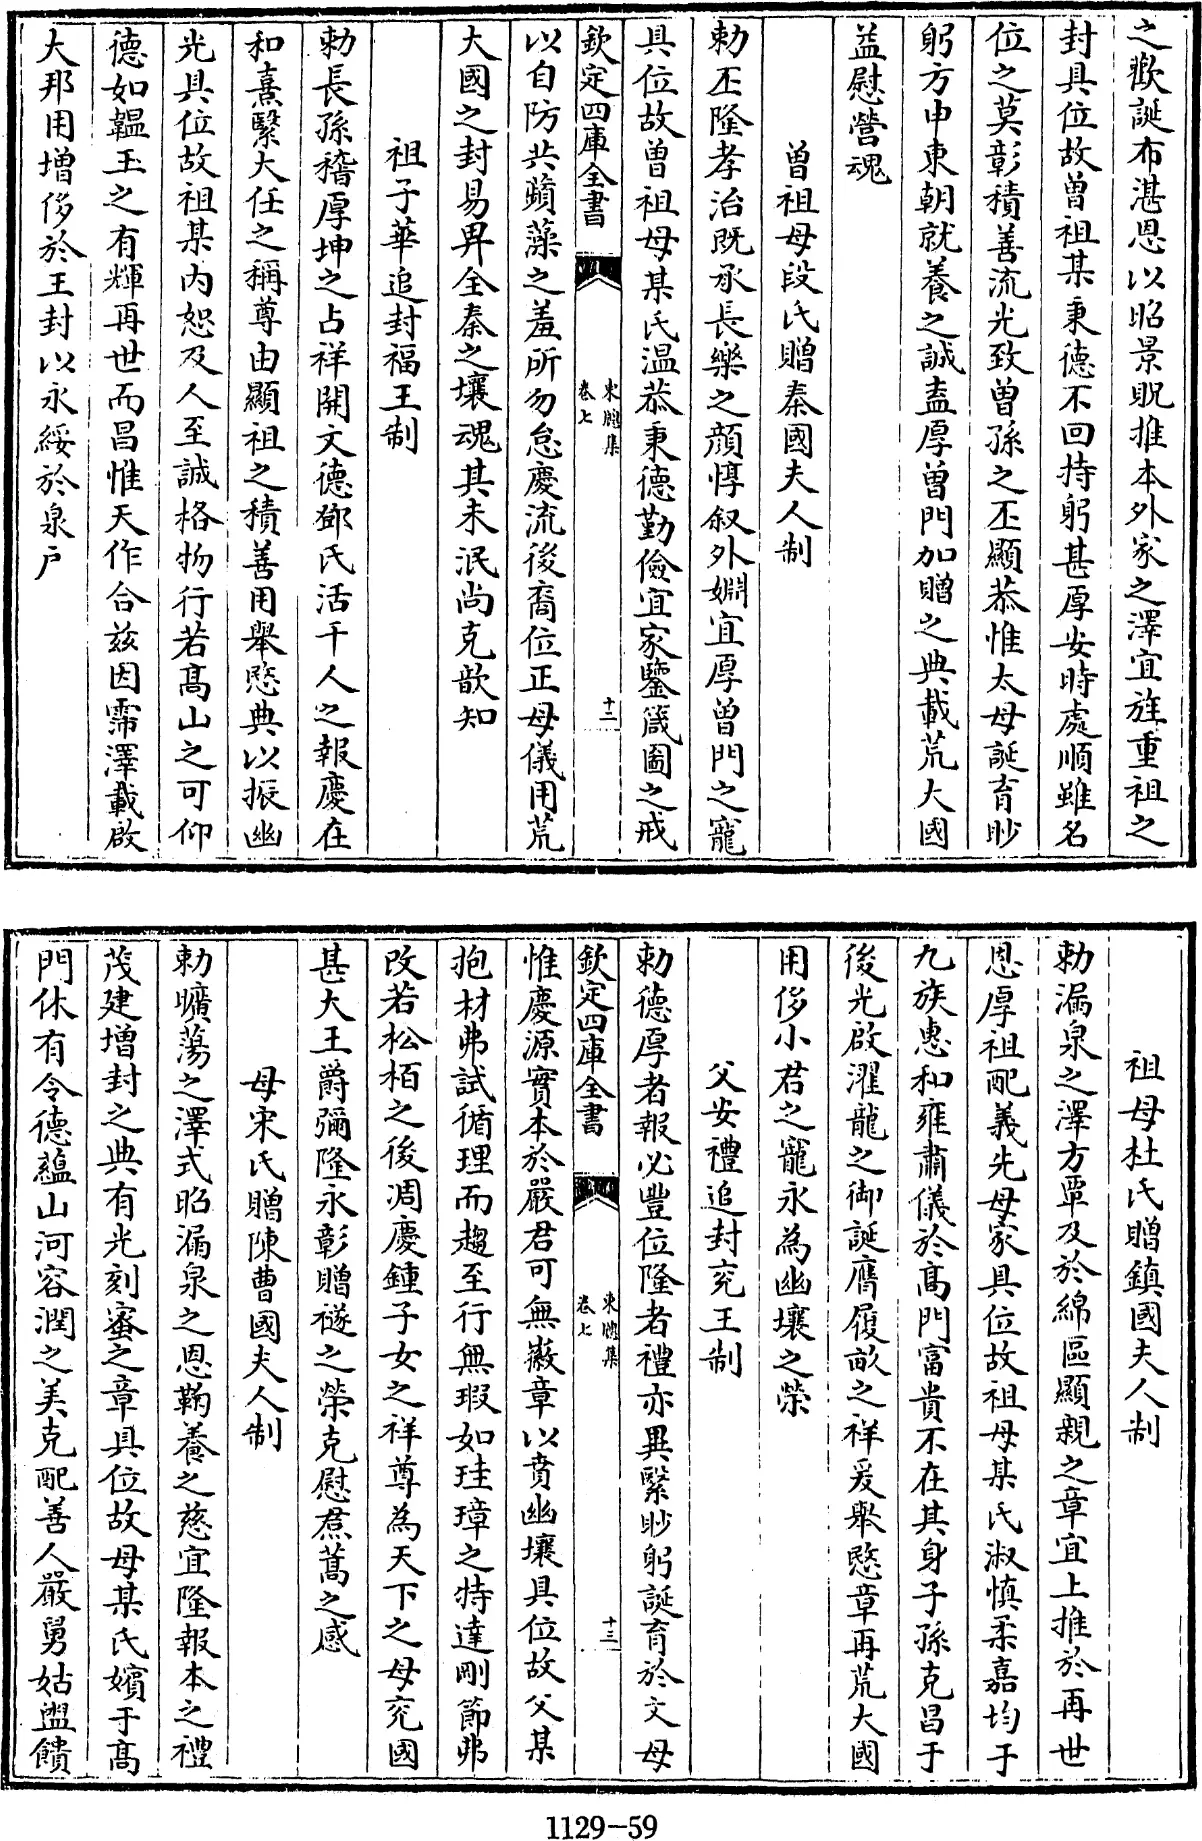 之歡誕布湛恩以昭景貺推本外家之澤宜旌重祖之
封具位故曾祖某秉德不回持躬甚厚安時處順雖名
位之莫彰積善流光致曾孫之丕顯恭惟太母誕育眇
躬方申東朝就養之誠盍厚曾門加贈之典載荒大國
益慰營魂
曾祖母段氏贈秦國夫人制
勅丕隆孝治既承長樂之顔惇叙外婣宜厚曾門之寵
具位故曾祖母某氏温恭秉德勤儉宜家鑒箴圖之戒
欽定四庫全書
東牕集
卷七
十二
以自防共蘋藻之羞所勿怠慶流後裔位正母儀用荒
大國之封易畀全秦之壤魂其未泯尚克歆知
祖子華追封福王制
勅長孫稽厚坤之占祥開文德鄧氏活千人之報慶在
和熹繄大任之稱尊由顯祖之積善用舉愍典以振幽
光具位故祖某内恕及人至誠格物行若髙山之可仰
德如韞玉之有輝再世而昌惟天作合兹因霈澤載啟
大邦用增侈於王封以永綏於泉户
祖母杜氏贈鎮國夫人制
勅漏泉之澤方覃及於綿區顯親之章宜上推於再世
恩厚祖配義先母家具位故祖母某氏淑慎柔嘉均于
九族惠和雍肅儀於髙門富貴不在其身子孫克昌于
後光啟濯龍之御誕膺履畝之祥爰舉愍章再荒大國
用侈小君之寵永為幽壤之榮
父安禮追封兖王制
勅德厚者報必豐位隆者禮亦異繄眇躬誕育於文母
欽定四庫全書
東牕集
卷七
十三
惟慶源實本於嚴君可無徽章以賁幽壤具位故父某
抱材弗試循理而趨至行無瑕如珪璋之特達剛節弗
改若松栢之後凋慶鍾子女之祥尊為天下之母兖國
甚大王爵彌隆永彰贈襚之榮克慰焄蒿之感
母宋氏贈陳曹國夫人制
勅曠蕩之澤式昭漏泉之恩鞠養之慈宜隆報本之禮
茂建增封之典有光刻蜜之章具位故母某氏嬪于髙
門休有令德蘊山河容潤之美克配善人嚴舅姑盥饋
1129-59